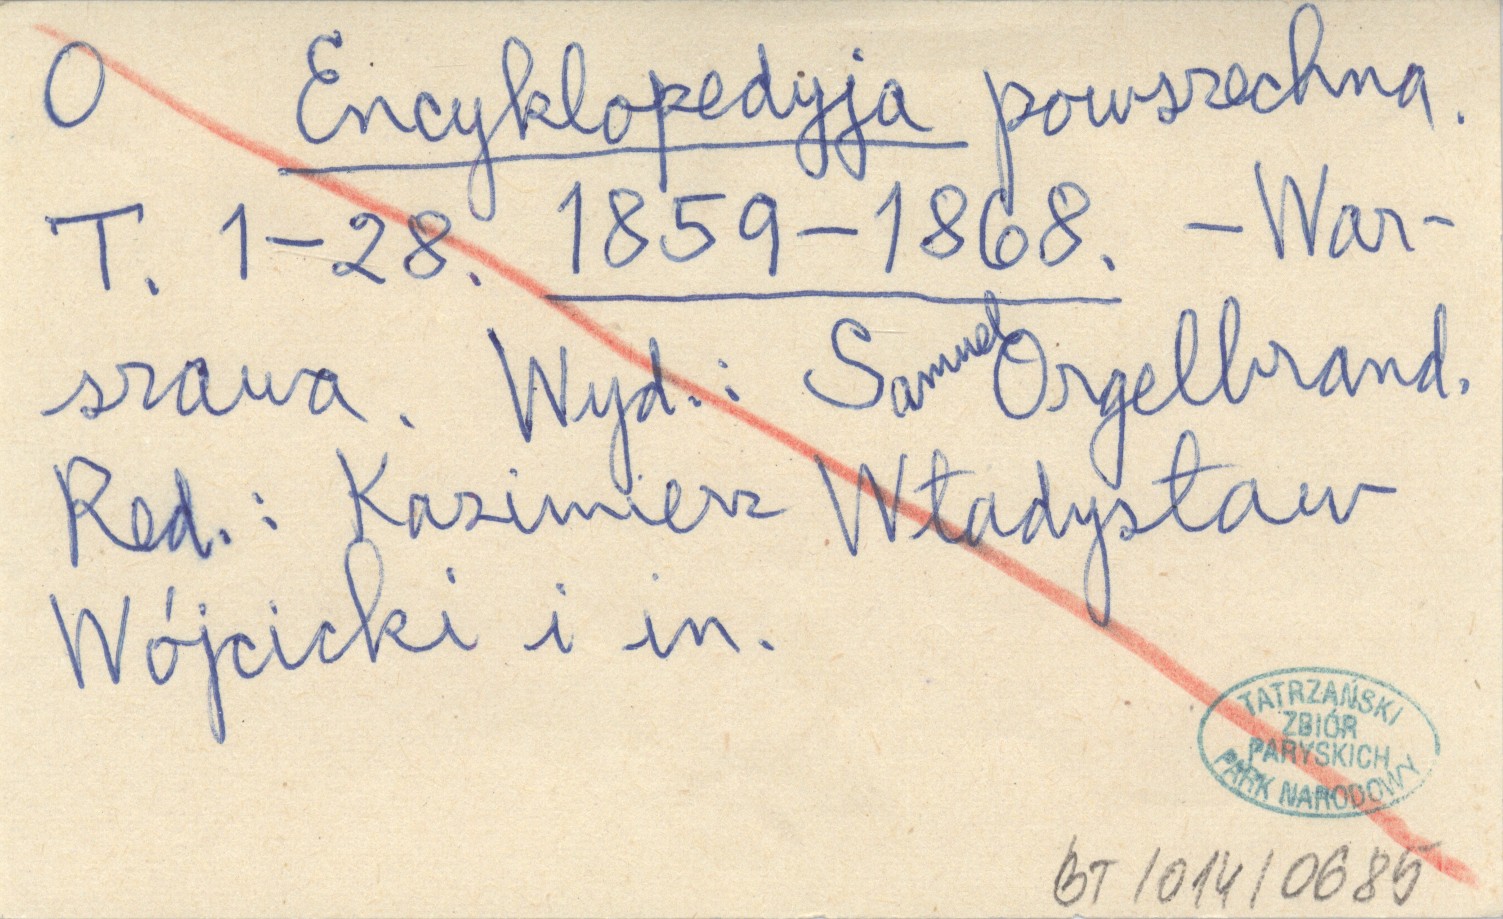 O Encyklopedyja powszechna.
T. 1-28. 1859-1868. - War-
szawa. Wyd.: Samuel Orgelbrand.
Red.: Kazimierz Władysław
Wójcicki i in.
TATRZAŃSKI
ZBIÓR
PARYSKICH
PARK NARODOWY
BT/014/0685